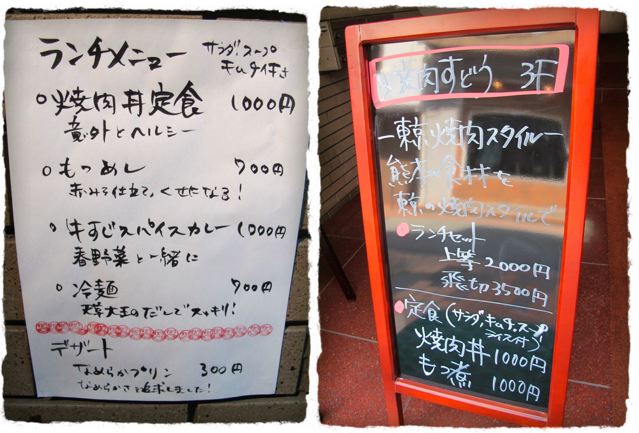 ランチメニュー
サラダ・スープ
キムチ付き
焼肉丼定食 1000円
意外とヘルシー
もつめし 700円
赤みそ仕立て、くせになる!
牛すじスパイスカレー 1000円
春野菜と一緒に
冷麺 700円
のだしでスッキリ!
デザート
なめらかプリン 300円
なめらかさを追求しました!
焼肉すどう 3F
ー東京焼肉スタイルー
熊本の食材を
東京の焼肉スタイルで
ランチセット
上等 2000円
飛切 3500円
定食(サラダ・キムチ・スープ
ライス付)
焼肉丼 1000円
もつ煮 1000円